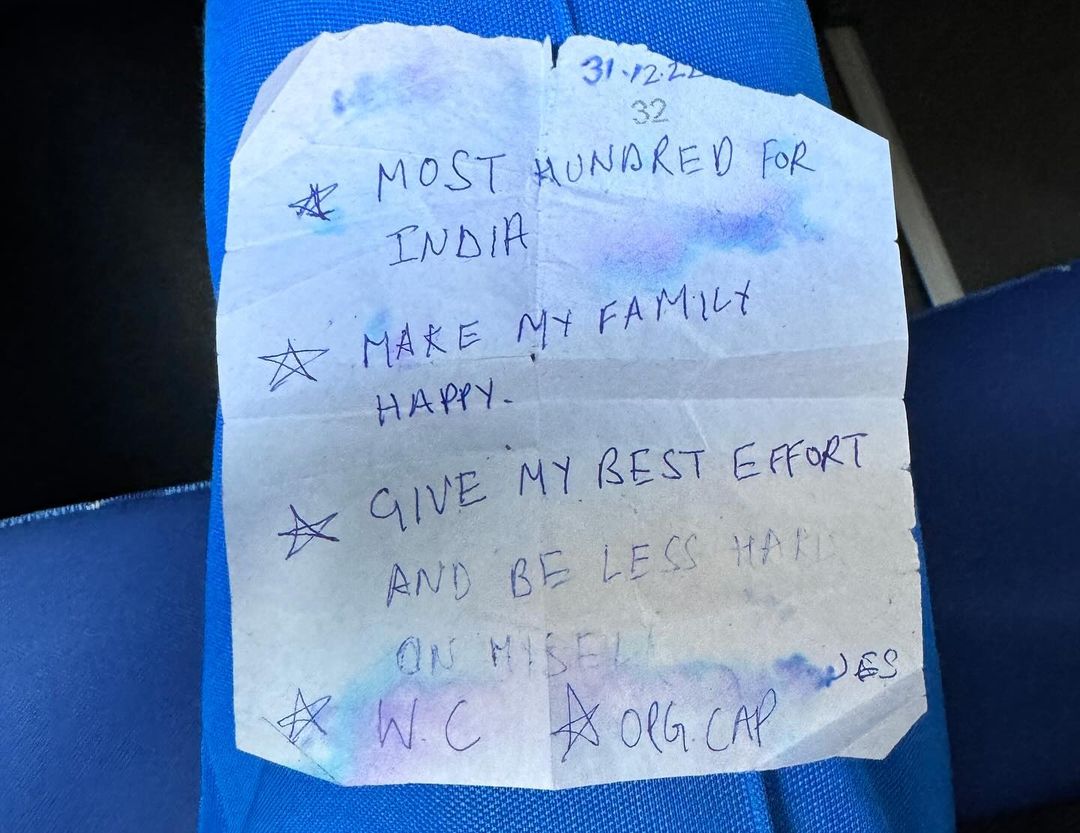 31.12.22
32
MOST HUNDRED FOR
INDIA
MAKE MY FAMILY
HAPPY.
GIVE MY BEST EFFORT
AND BE LESS HARD
ON MYSELF
W.C ORG.CAP